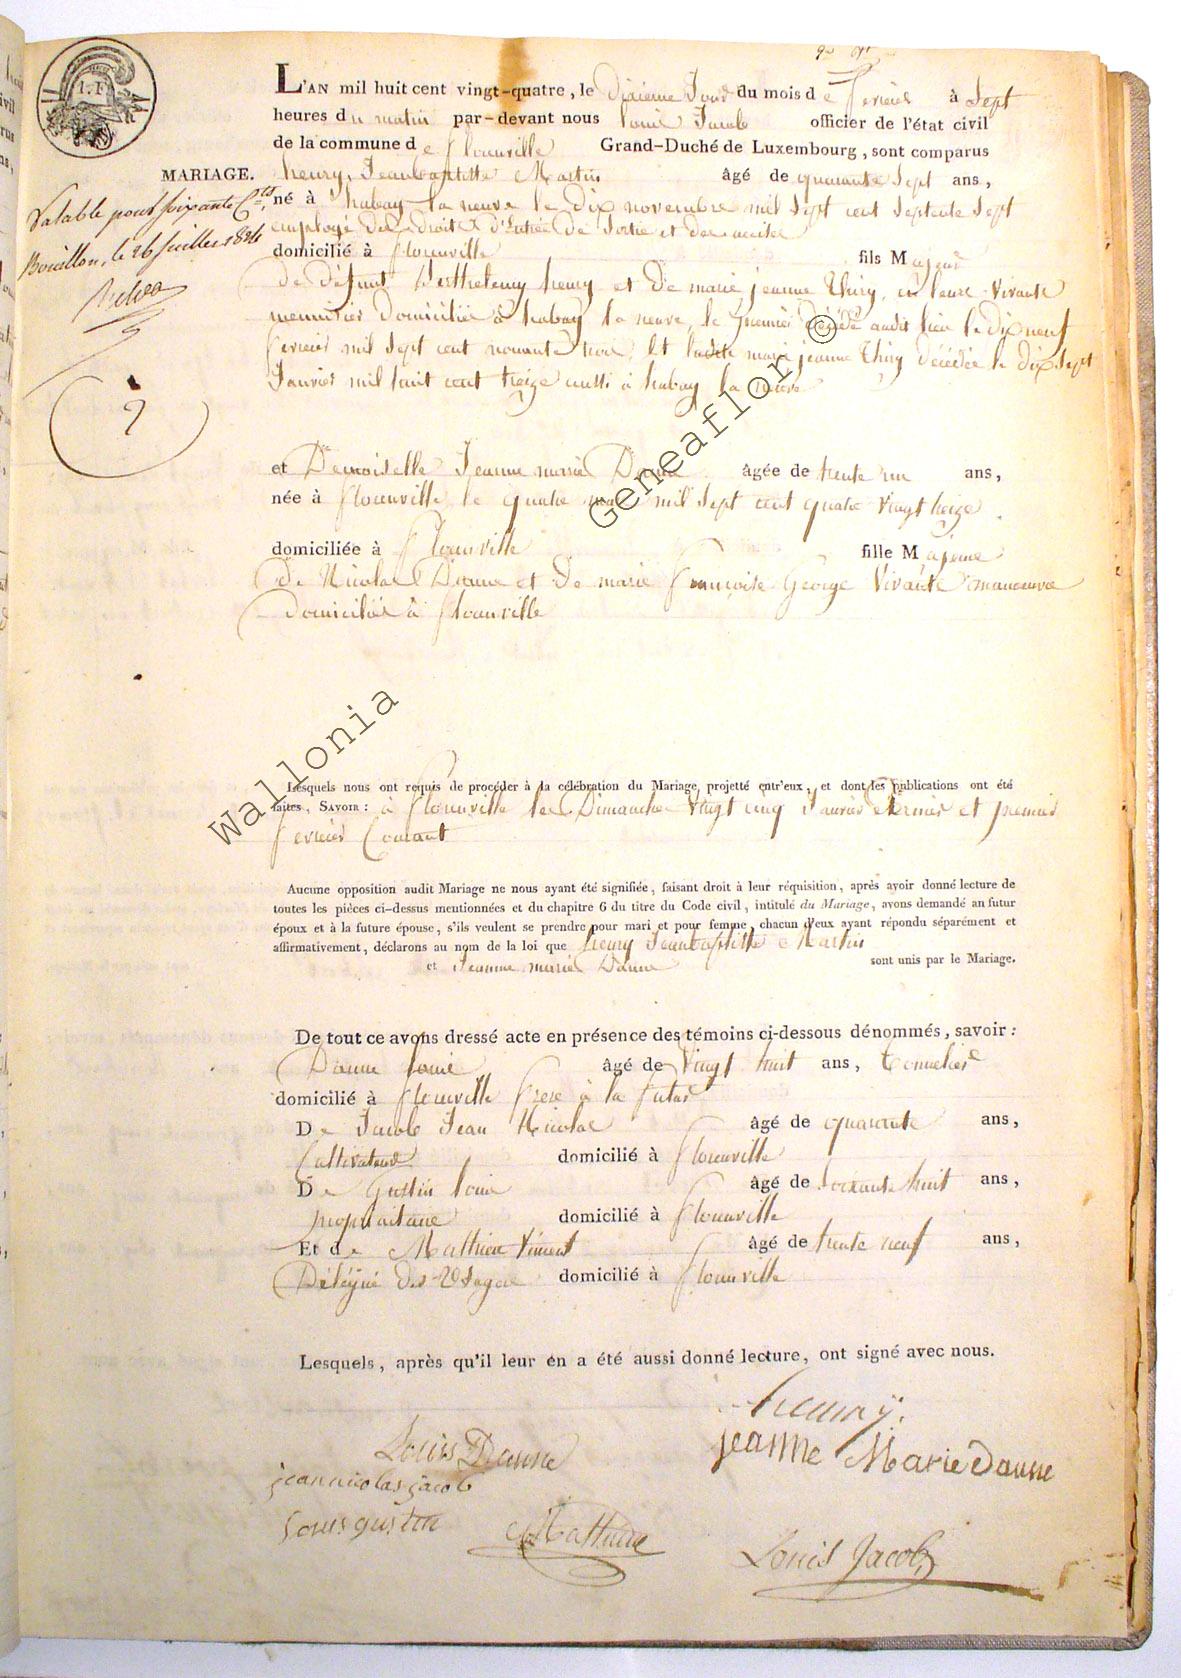 L'AN mil huit cent vingt-quatre, le Dixieme Jour du mois de fevrier à Sept
heures du matin par-devant nous louis Jacob officier de l'état civil
de la commune de florenville Grand-Duché de Luxembourg, sont comparus
MARIAGE.
henry, Jeanbaptiste Martin âgé de quarante sept ans,
Valable pour soixante Cts
Bouillon, le 26 Juillet 1826
9
né à habay la neuve le dix novembre mil sept cent septente sept
employé des droits d'Entrée de sortie et des accises
domicilié à florenville fils Majeur
De défunt Berthelemy henry et De marie jeanne Thiry, en leurs vivants
meunier Domiciliés à habay la neuve, le premier décédé audit lieu le dix neuf
fevrier mil sept cent nonante trois, Et ladite marie jeanne Thiry décédée le dix sept
Janvier mil huit cent treize aussi à habay la neuve
et Demoiselle Jeanne marie Danne âgée de trente un ans,
née à florenville le quatre mai mil sept cent quatre vingt treize
domiciliée à florenville fille Majeure
De Nicolas Danne et De marie françoise George Vivants manoeuvre
Domiciliés à florenville
Lesquels nous ont requis de procéder à la célébration du Mariage, projetté entr'eux, et dont les publications ont été
faites, SAVOIR : à florenville les Dimanche vingt cinq Janvier dernier et premier
fevrier Courant
Aucune opposition audit Mariage ne nous ayant été signifiée, faisant droit à leur réquisition, après avoir donné lecture de
toutes les pièces ci-dessus mentionnées et du chapitre 6 du titre du Code civil, intitulé du Mariage, avons demandé au futur
époux et à la future épouse, s'ils veulent se prendre pour mari et pour femme, chacun d'eux ayant répondu séparément et
affirmativement, déclarons au nom de la loi que henry Jeanbaptiste Martin
et Jeanne marie Danne sont unis par le Mariage.
De tout ce avons dressé acte en présence des témoins ci-dessous dénommés, savoir :
Danne louis âgé de Vingt huit ans, tonnelier
domicilié à florenville frere à la future
De Jacob Jean Nicolas âgé de quarante ans,
Cultivateur domicilié à florenville
De Gustin louis âgé de soixante huit ans,
propriétaire domicilié à florenville
Et de Mathieu Vincent âgé de trente neuf ans,
domicilié à florenville
Lesquels, après qu'il leur en a été aussi donné lecture, ont signé avec nous.
henry.
Louis Danne
jeanne Marie Danne
jeannicolas jacob
Louis gustin
Mathieu
Louis Jacob
Wallonia
Geneaflor ©